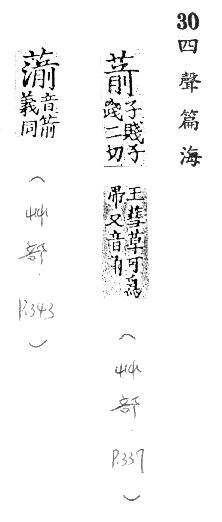 30 四聲篇海
葥 子賤子
踐二切
王彗草可爲
帚又音
（艸部．P.337）
音箭
義同
（艸部．P.343）